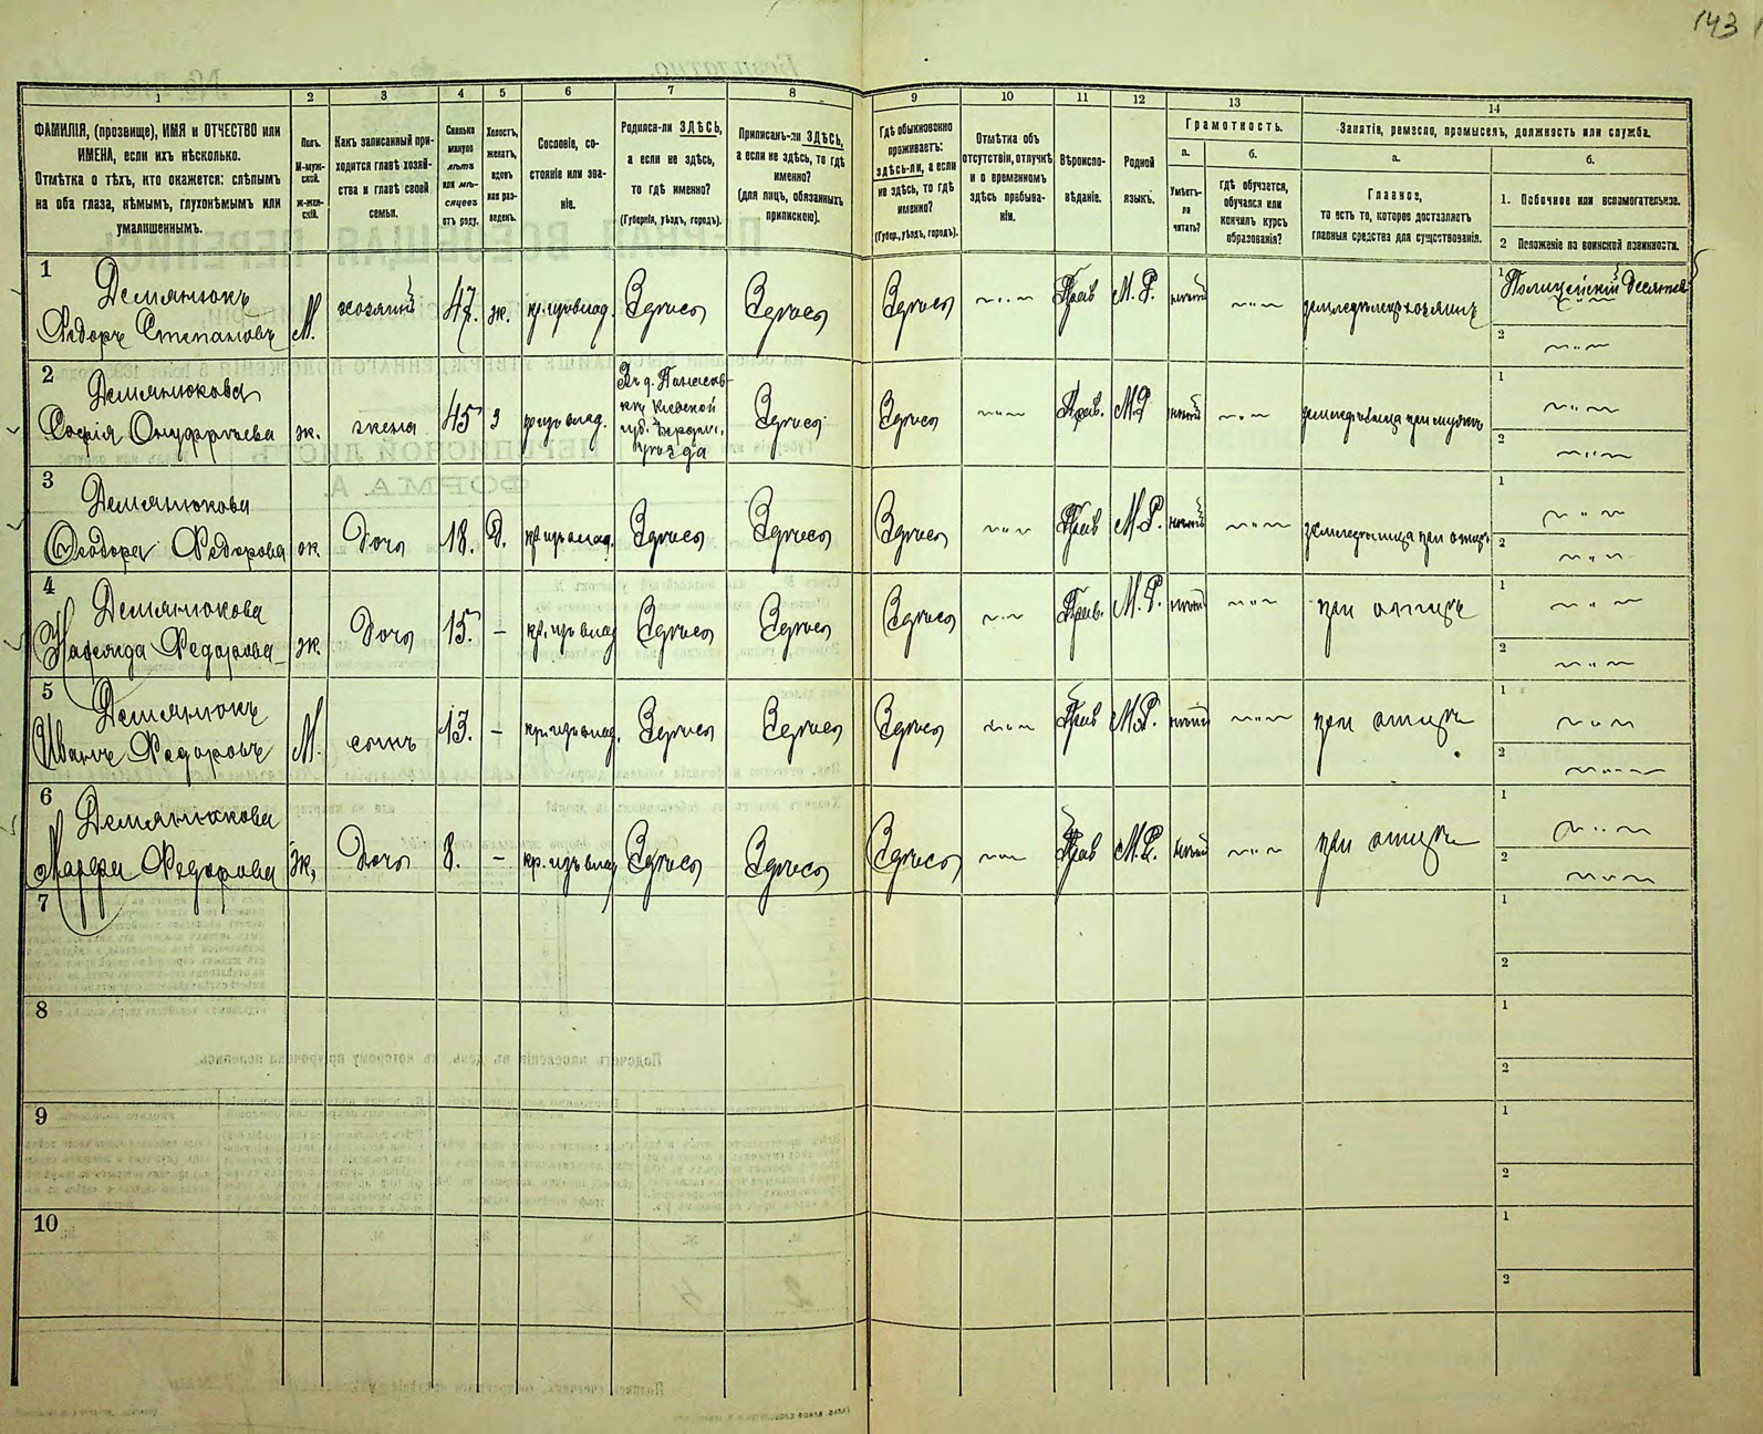 143
1 2 3 4 5 6 7 8 9 10 11 12 13 14
ФАМИЛІЯ, (прозвище), ИМЯ и ОТЧЕСТВО или
ИМЕНА, если ихъ нѣсколько.
Отмѣтка о тѣхъ, кто окажется: слѣпымъ
на оба глаза, нѣмымъ, глухонѣмымъ или
умалишеннымъ.
Полъ.
М-муж-
ской.
Ж-жен-
скій.
Какъ записанный при-
ходится главѣ хозяй-
ства и главѣ своей
семьи.
Сколько
минуло
лѣтъ
или мѣ-
сяцевъ
отъ роду.
Холостъ,
женатъ,
вдовъ
или раз-
веденъ.
Сословіе, со-
стояніе или зва-
ніе.
Родился-ли ЗДѢСЬ,
а если не здѣсь,
то гдѣ именно?
(Губернія, уѣздъ, городъ).
Приписанъ-ли ЗДѢСЬ,
а если не здѣсь, то гдѣ
именно?
(для лицъ, обязанныхъ
припискою).
Гдѣ обыкновенно
проживаетъ:
здѣсь-ли, а если
не здѣсь, то гдѣ
именно?
(Губер., уѣздъ, городъ).
Отмѣтка объ
отсутствіи, отлучкѣ
и о временномъ
здѣсь пребыва-
ніи.
Вѣроиспо-
вѣданіе.
Родной
языкъ.
Грамотность.
а.
Умѣетъ-
ли
читать?
б.
гдѣ обучается,
обучался или
кончилъ курсъ
образованія?
Занятіе, ремесло, промыселъ, должность или служба.
а.
Главное,
то есть то, которое доставляетъ
главныя средства для существованія.
б.
1. Побочное или вспомогательное.
2 Положеніе по воинской повинности.
1 Демянюкъ
Федоръ Степановъ М. хозяинъ 47. ж. кр. Здѣсь Здѣсь Здѣсь Прав М. Р. земледѣлецъ хозяинъ
1 Полицейскій
2
2 Демянюкова
Софія Онуфріева ж. жена 45 З
Въ д.
Кіевской
губ.
уѣзда
Здѣсь Здѣсь Прав. М.Р.
1
2
3 Демянюкова
Ѳеодора Федорова ж. Дочь 18. Д. Здѣсь Здѣсь Здѣсь Прав М.Р. при отцѣ
1
2
4 Демянюкова
Надежда Федорова ж Дочь 15. – кр. Здѣсь Здѣсь Здѣсь Прав. М. Р. при отцѣ
1
2
5 Демянюкъ
Иванъ Федоровъ М. сынъ 13. – кр. Здѣсь Здѣсь Здѣсь Прав М.Р. при отцѣ
1
2
6 Демянюкова
Марфа Федорова ж, Дочь 8. – кр. Здѣсь Здѣсь Здѣсь Прав М.Р. при отцѣ
1
2
7
1
2
8
1
2
9
1
2
10
1
2